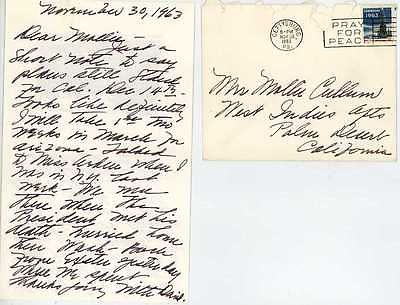 November 30, 1963
Dear Mollie -
Just a
Short note to say
plans still
for Cal. Dec 14th -
Looks like definitely
I will take 1st two
weeks in March for
Arizona - Talked
to Miss Arden when I
was in N.Y. last
week - We were
there when the
President met his
death - hurried home
then Wash - Back
from Exeter yesterday
where we spent
thanksgiving with David.
GETTYSBURG
PA.
1963
PRAY
FOR
PEACE
1963
Mrs Mollie Cullum
West Indies Apts
Palm Desert
California